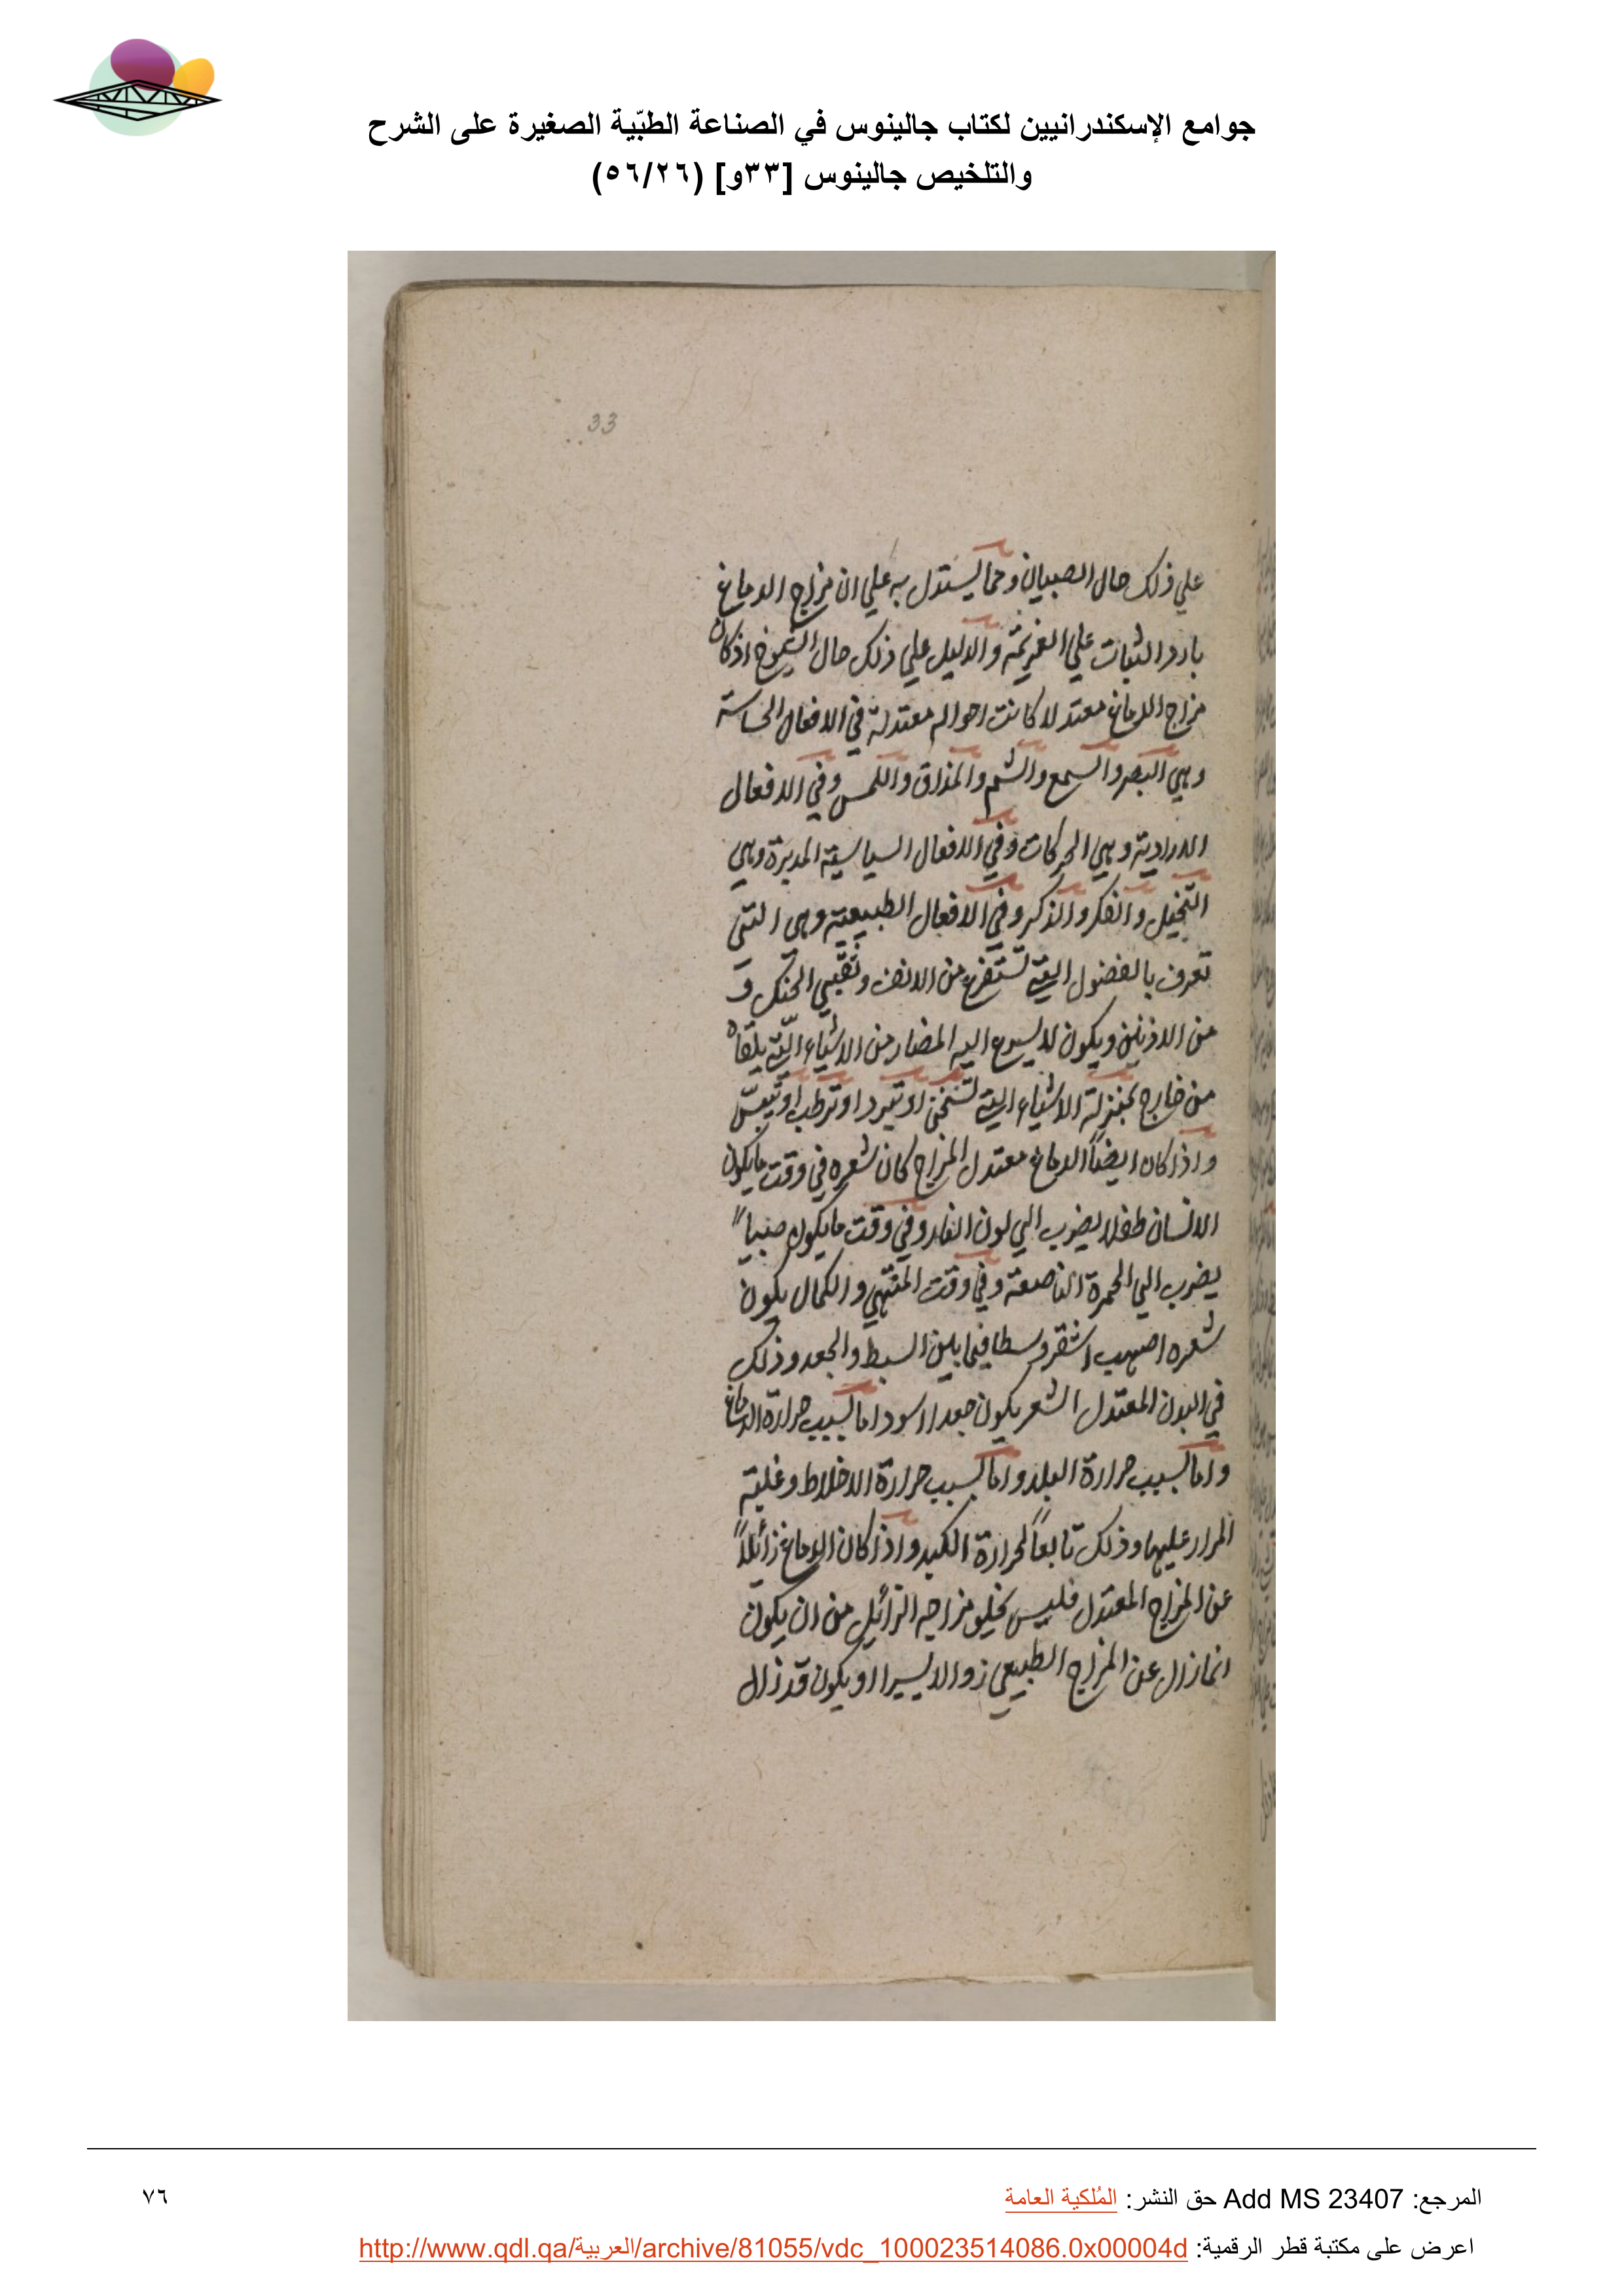 جوامع الإسكندرانيين لكتاب جالينوس في الصناعة الطبّية الصغيرة على الشرح
والتلخيص جالينوس [٣٣و] (٥٦/٢٦)
33
علي ذلك حال الصبيان ومما يستدل به علي ان مزاج الدماغ
بارد الثبات علي العزيمة والدليل علي ذلك حال الشيوخ اذ كان
مزاج الدماغ معتدلا كانت احواله معتدلة في الافعال الحساسة
وهي البصر والسمع والشم والمذاق واللمس وفي الافعال
الارادية وهي الحركات وفي الافعال السياسية المدبرة وهي
التخيل والفكر والذكر وفي الافعال الطبيعية وهي التي
تعرف بالفضول التي تستفرغ من الانف وثقبي الحنك و
من الاذنين ويكون لا يسرع اليه المضار من الاشياء التي يلقاه
من خارج بمنزلة الاشياء التي تسخن او تبرد او ترطب او تيبّس
واذا كان ايضاً الدماغ معتدل المزاج كان شعره في وقت ما يكون
الانسان طفلا يضرب الي لون النار وفي وقت ما يكون صبياً
يضرب الي الحمرة الناصعة وفي وقت المنتهي والكمال يكون
شعره اصهب اشقر وسطا فيما بين السبط والجعد وذلك
في البدن المعتدل الشعر يكون جعدا اسود اما بسبب حرارة الدماغ
واما بسبب حرارة البلد واما بسبب حرارة الاخلاط وغلبة
المرار عليها وذلك تابعاً لحرارة الكبد واذا كان الدماغ زائلاً
عن المزاج المعتدل فليس يخلو مزاجه الزائل من ان يكون
انما زال عن المزاج الطبيعي زوالا يسيرا او يكون قد زال
المرجع: Add MS 23407 حق النشر: المُلكية العامة
٧٦
اعرض على مكتبة قطر الرقمية: http://www.qdl.qa/العربية/archive/81055/vdc_100023514086.0x00004d